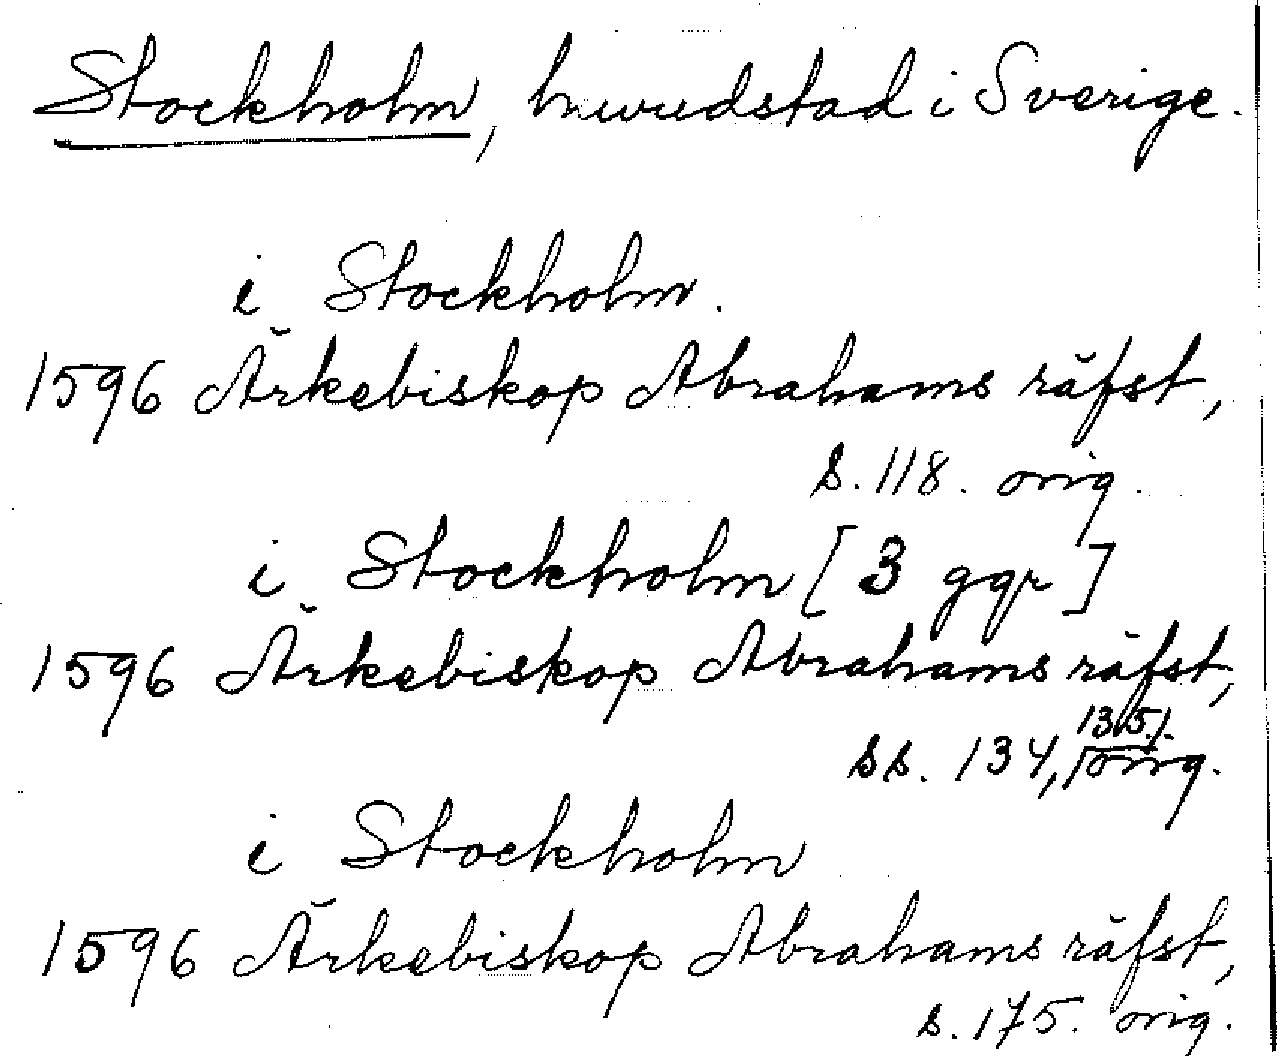 Stockholm, huvudstad i Sverige.
i Stockholm.
1596 Ärkebiskop Abrahams räfst,
s. 118. orig.
i Stockholm [3 ggr]
1596 Ärkebiskop Abrahams räfst,
135/.
ss. 134, orig.
i Stockholm
1596 Ärkebiskop Abrahams räfst,
s. 175. orig.